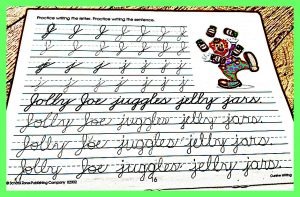 Practice writing the letter. Practice writing the sentence.
J J J J J J J
J J J J J J J
j j j j j j j
j j j j j j j
Jolly Joe juggles jelly jars.
Jolly Joe juggles jelly jars.
Jolly Joe juggles jelly jars.
Jolly Joe juggles jelly jars.
Publishing Company
16
Cursive Writing